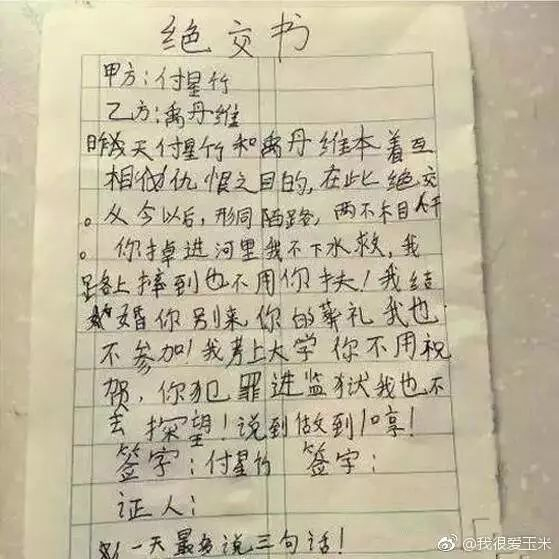 绝交书
甲方:付星竹
乙方:禹丹维
昨天付星竹和禹丹维本着互
相仇恨之目的,在此绝交
。从今以后,形同陌路,两不相干
。你掉进河里我不下水救,我
路上摔到也不用你扶!我结
婚你别来你的葬礼我也
不参加!我考上大学你不用祝
贺,你犯罪进监狱我也不
去探望!说到做到!哼!
签字:付星竹 签字:
证人:
一天最多说三句话!
@我很爱玉米